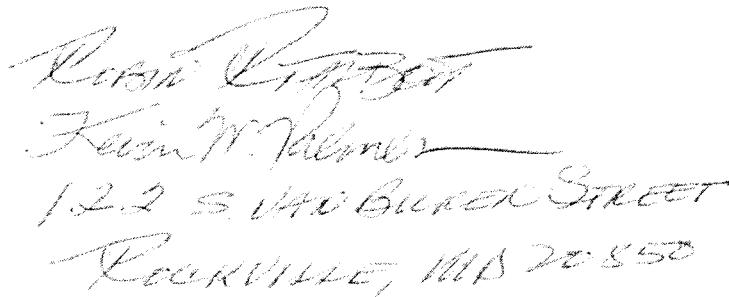 Robin
Kevin W. Palmer
122 S. VAN BUREN STREET
ROCKVILLE, MD 20850